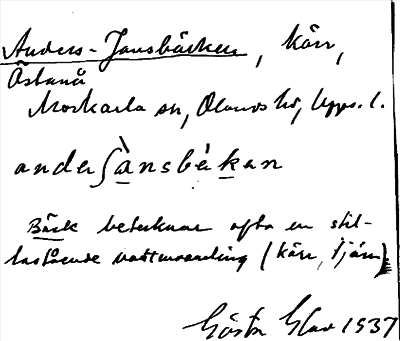 Anders-Jansbäcken, kärr,
Östanå
Morkarla sn, Olands hd, Upps. l.
anderʃànsbèkan
Bäck betecknar ofta en stil-
lastående vattensamling (kärr, tjärn)
Gösta 1937